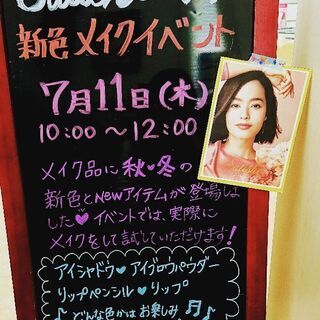 新色メイクイベント
7月11日(木)
10:00〜12:00
メイク品に秋・冬の
新色とNewアイテムが登場しま
した♥イベントでは、実際に
メイクをして試していただけます!
アイシャドウ♥アイブロウパウダー
リップペンシル♥リップ
♪どんな色かはお楽しみ♬♪